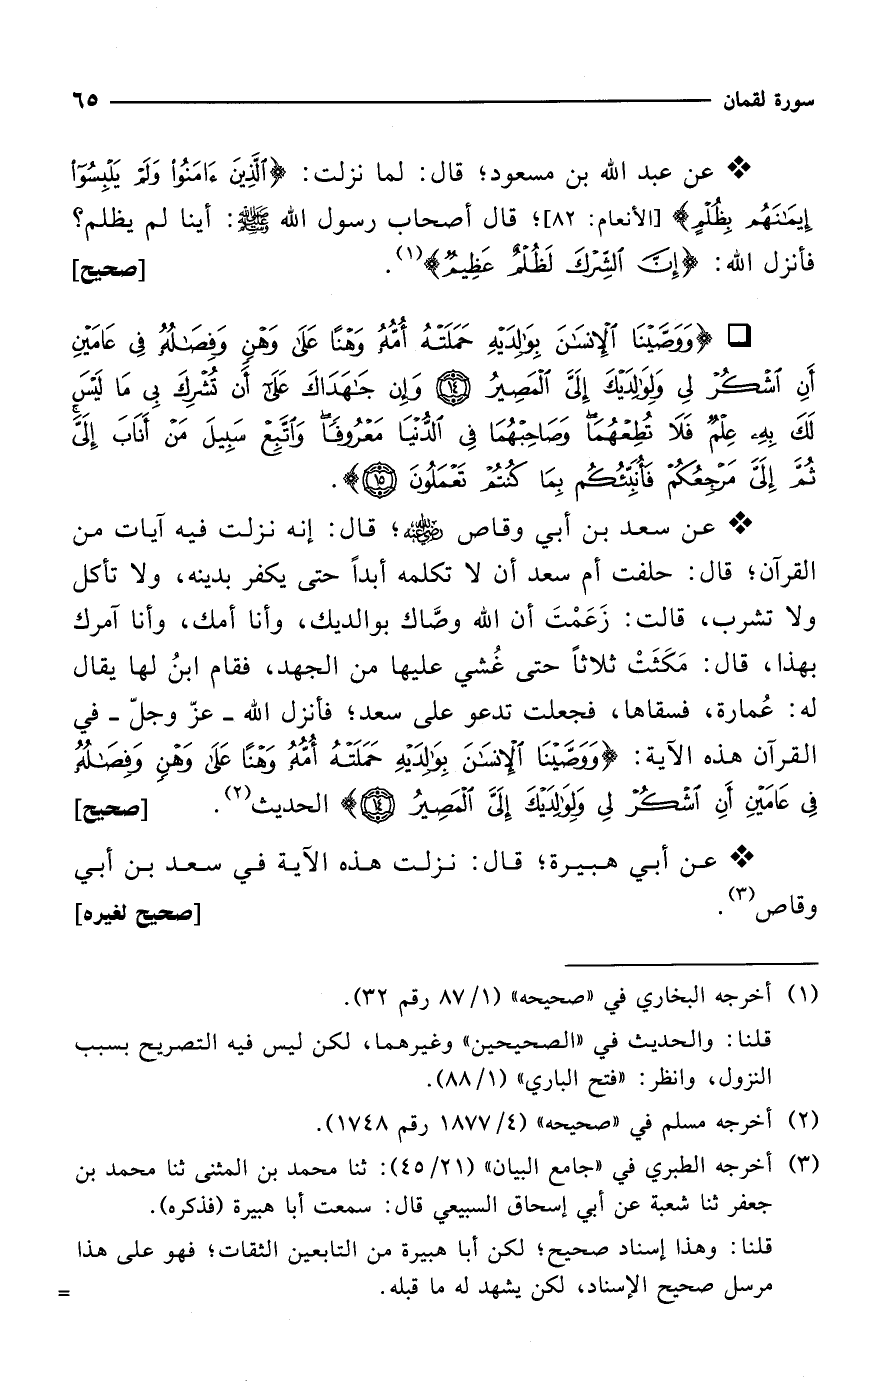 سورة لقمان ٦٥
❖ عن عبد الله بن مسعود؛ قال: لما نزلت: ﴿ٱلَّذِينَ ءَامَنُوا۟ وَلَمْ يَلْبِسُوٓا۟
إِيمَـٰنَهُم بِظُلْمٍ﴾ [الأنعام: ٨٢]؛ قال أصحاب رسول الله ﷺ: أينا لم يظلم؟
فأنزل الله: ﴿إِنَّ ٱلشِّرْكَ لَظُلْمٌ عَظِيمٌ﴾(١). [صحيح]
❏ ﴿وَوَصَّيْنَا ٱلْإِنسَـٰنَ بِوَٰلِدَيْهِ حَمَلَتْهُ أُمُّهُۥ وَهْنًا عَلَىٰ وَهْنٍ وَفِصَـٰلُهُۥ فِى عَامَيْنِ
أَنِ ٱشْكُرْ لِى وَلِوَٰلِدَيْكَ إِلَىَّ ٱلْمَصِيرُ ۝١٤ وَإِن جَـٰهَدَاكَ عَلَىٰٓ أَن تُشْرِكَ بِى مَا لَيْسَ
لَكَ بِهِۦ عِلْمٌ فَلَا تُطِعْهُمَا ۖ وَصَاحِبْهُمَا فِى ٱلدُّنْيَا مَعْرُوفًا ۖ وَٱتَّبِعْ سَبِيلَ مَنْ أَنَابَ إِلَىَّ ۚ
ثُمَّ إِلَىَّ مَرْجِعُكُمْ فَأُنَبِّئُكُم بِمَا كُنتُمْ تَعْمَلُونَ ۝١٥﴾.
❖ عن سعد بن أبي وقاص رضي الله عنه؛ قال: إنه نزلت فيه آيات من
القرآن؛ قال: حلفت أم سعد أن لا تكلمه أبداً حتى يكفر بدينه، ولا تأكل
ولا تشرب، قالت: زَعَمْتَ أن الله وصَّاك بوالديك، وأنا أمك، وأنا آمرك
بهذا، قال: مَكَثَتْ ثلاثاً حتى غُشي عليها من الجهد، فقام ابنُ لها يقال
له: عُمارة، فسقاها، فجعلت تدعو على سعد؛ فأنزل الله ـ عزّ وجلّ ـ في
القرآن هذه الآية: ﴿وَوَصَّيْنَا ٱلْإِنسَـٰنَ بِوَٰلِدَيْهِ حَمَلَتْهُ أُمُّهُۥ وَهْنًا عَلَىٰ وَهْنٍ وَفِصَـٰلُهُۥ
فِى عَامَيْنِ أَنِ ٱشْكُرْ لِى وَلِوَٰلِدَيْكَ إِلَىَّ ٱلْمَصِيرُ ۝١٤﴾ الحديث(٢). [صحيح]
❖ عن أبي هبيرة؛ قال: نزلت هذه الآية في سعد بن أبي
وقاص(٣). [صحيح لغيره]
(١) أخرجه البخاري في «صحيحه» (١/ ٨٧ رقم ٣٢).
قلنا: والحديث في «الصحيحين» وغيرهما، لكن ليس فيه التصريح بسبب
النزول، وانظر: «فتح الباري» (١/ ٨٨).
(٢) أخرجه مسلم في «صحيحه» (٤/ ١٨٧٧ رقم ١٧٤٨).
(٣) أخرجه الطبري في «جامع البيان» (٢١/ ٤٥): ثنا محمد بن المثنى ثنا محمد بن
جعفر ثنا شعبة عن أبي إسحاق السبيعي قال: سمعت أبا هبيرة (فذكره).
قلنا: وهذا إسناد صحيح؛ لكن أبا هبيرة من التابعين الثقات؛ فهو على هذا
مرسل صحيح الإسناد، لكن يشهد له ما قبله. =